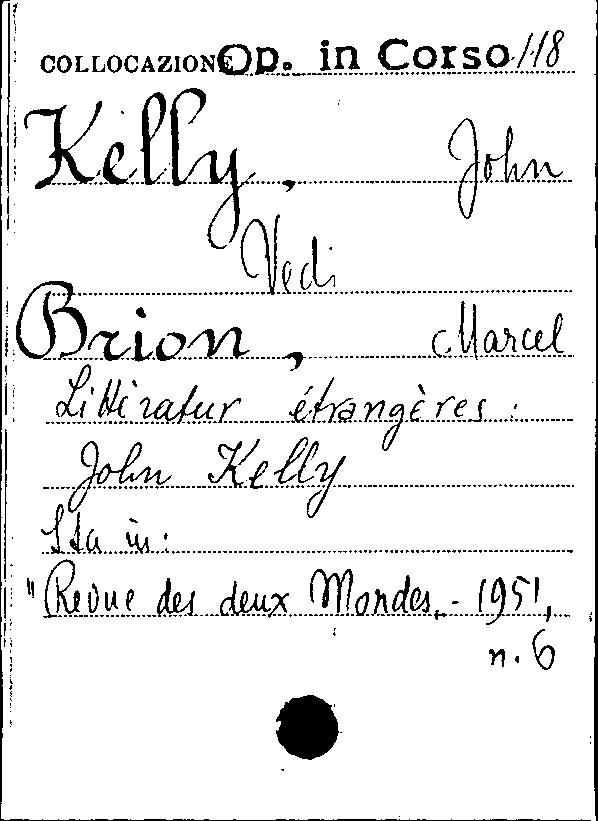 COLLOCAZIONE Op. in Corso 118
Kelly, John
Vedi
Brion, Marcel
Littératur étrangères:
John Kelly
Sta in:
"Revue des deux Mondes,, - 1951,
n. 6